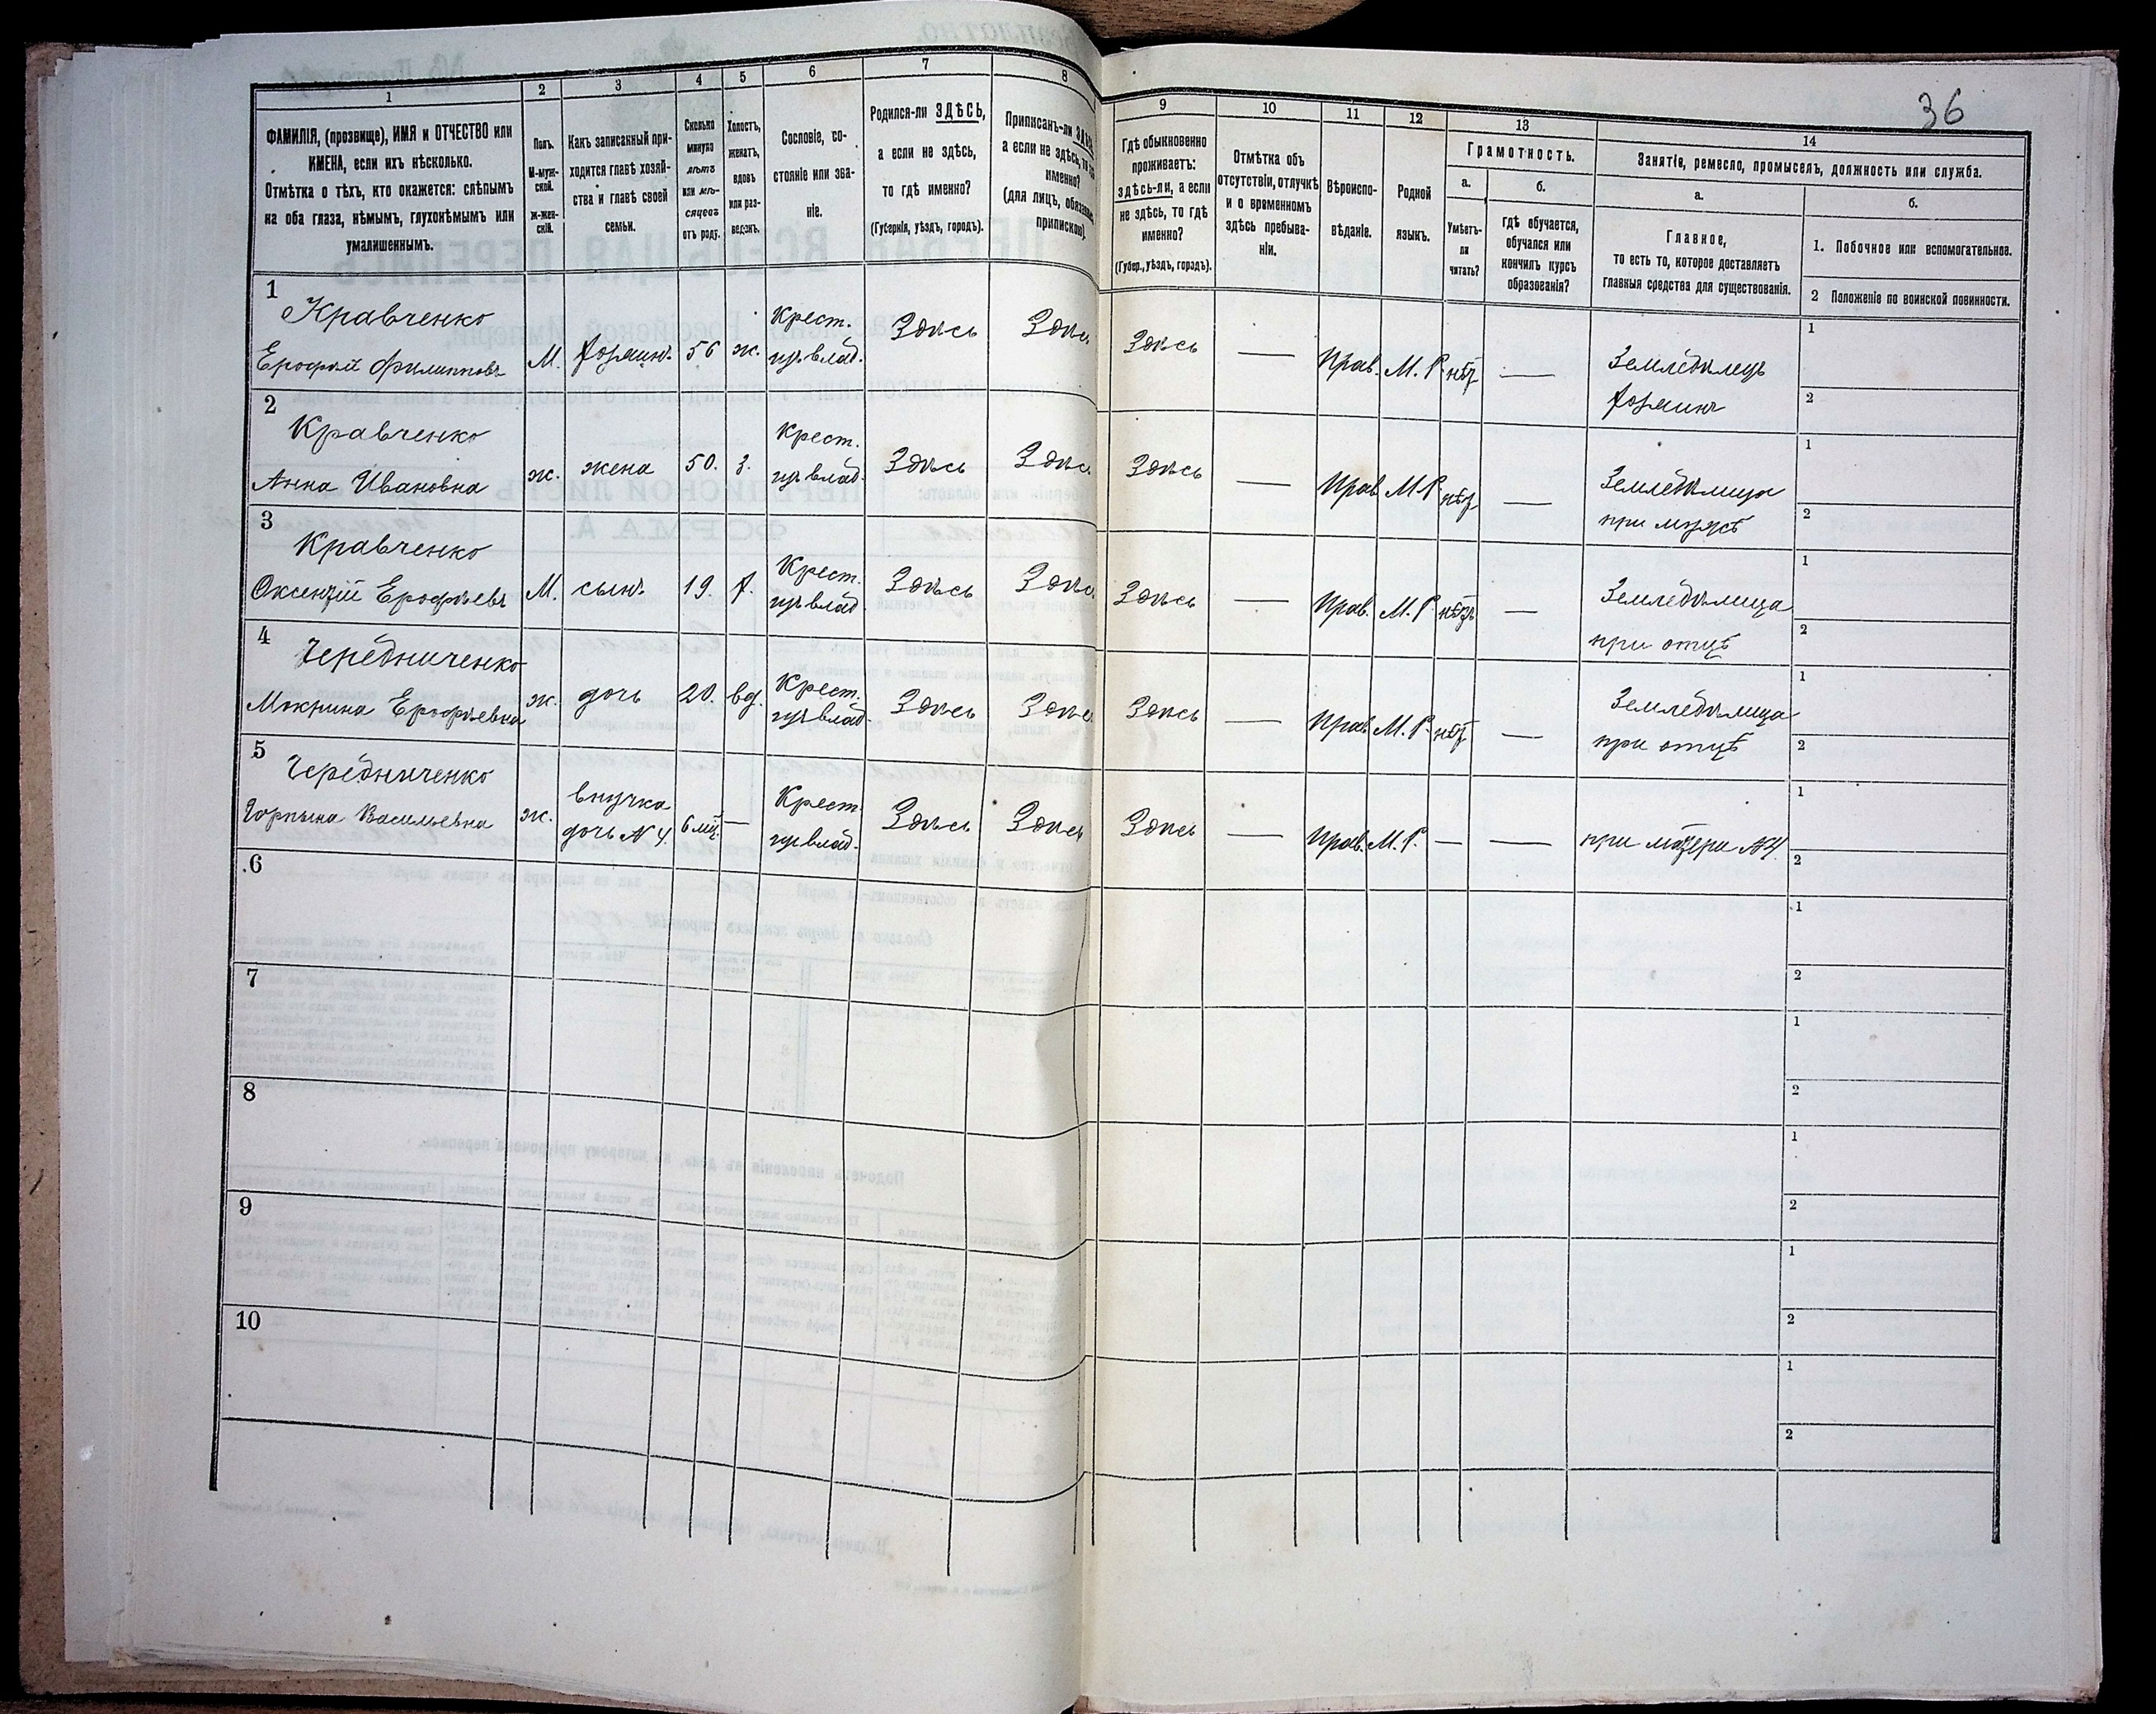 36
1
2
3
4
5
6
7
8
9
10
11
12
13
14
ФАМИЛІЯ, (прозвище), ИМЯ и ОТЧЕСТВО или
ИМЕНА, если ихъ нѣсколько.
Отмѣтка о тѣхъ, кто окажется: слѣпымъ
на оба глаза, нѣмымъ, глухонѣмымъ или
умалишеннымъ.
Полъ.
М-муж-
ской.
ж-жен-
скій.
Какъ записанный при-
ходится главѣ хозяй-
ства и главѣ своей
семьи.
Сколько
минуло
лѣтъ
или мѣ-
сяцевъ
отъ роду.
Холостъ,
женатъ,
вдовъ
или раз-
веденъ.
Сословіе, со-
стояніе или зва-
ніе.
Родился-ли ЗДѢСЬ,
а если не здѣсь,
то гдѣ именно?
(Губернія, уѣздъ, городъ).
Приписанъ-ли
а если не здѣсь,
именно?
(для лицъ,
припискою).
Гдѣ обыкновенно
проживаетъ:
здѣсь-ли, а если
не здѣсь, то гдѣ
именно?
(Губер., уѣздъ, городъ).
Отмѣтка объ
отсутствіи, отлучкѣ
и о временномъ
здѣсь пребыва-
ніи.
Вѣроиспо-
вѣданіе.
Родной
языкъ.
Грамотность.
а.
Умѣетъ-
ли
читать?
б.
Гдѣ обучается,
обучался или
кончилъ курсъ
образованія?
Занятіе, ремесло, промыселъ, должность или служба.
а.
Главное,
то есть то, которое доставляетъ
главныя средства для существованія.
б.
1. Побочное или вспомогательное.
2 Положеніе по воинской повинности.
1
Кравченко
Ерофей Филипповъ
М.
хозяинъ
56
ж.
Крест.
влад.
Здѣсь
Здѣсь
Здѣсь
—
Прав.
М. Р.
нѣт
—
Земледѣлецъ
хозяинъ
1
2
2
Кравченко
Анна Ивановна
ж.
жена
50.
з.
Крест.
влад.
Здѣсь
Здѣс
Здѣсь
—
Прав
М.Р.
нѣт
—
Земледѣлица
при мужѣ
1
2
3
Кравченко
Оксентій Ерофѣевъ
М.
сынъ
19.
х.
Крест.
влад.
Здѣсь
Здѣс
Здѣсь
—
Прав.
М.Р
нѣтъ
—
Земледѣлица
при отцѣ
1
2
4
Чередниченко
Мокрина Ерофѣевна
ж.
дочь
20.
вд.
Крест.
влад.
Здѣсь
Здѣс
Здѣсь
—
Прав.
М.Р.
нѣт
—
Земледѣлица
при отцѣ
1
2
5
Чередниченко
Горпына Васильевна
ж.
внучка
дочь N 4.
6 мѣ.
—
Крест
влад.
Здѣсь
Здѣсь
Здѣсь
—
Прав.
М.Р.
—
—
при матери N4.
1
2
6
1
2
7
1
2
8
1
2
9
1
2
10
1
2